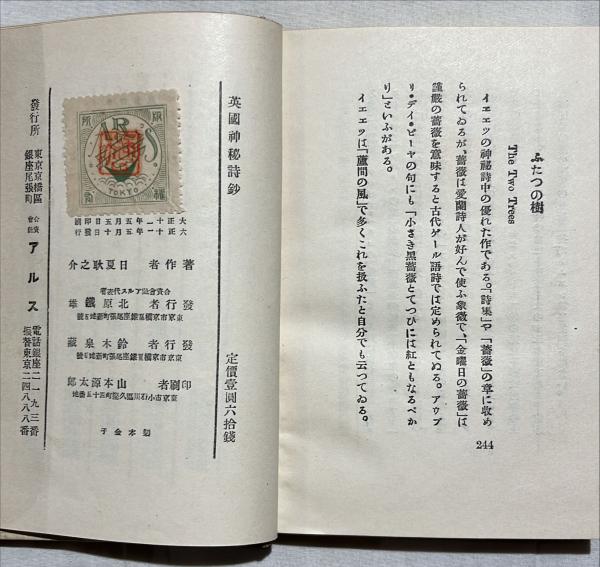 ふたつの樹
The Two Trees
イエエツの神秘詩中の優れた作である。「詩集」や「薔薇」の章に收め
られてゐるが、薔薇は愛蘭詩人が好んで使ふ象徴で、「金曜日の薔薇」は
謹嚴の薔薇を意味すると古代ゲール語詩では定められてゐる。アウブ
リ・デイ・ビーヤの句にも「小さき黒薔薇とてつひには紅ともなるべか
り」といふがある。
イエエツは「蘆間の風」で多くこれを扱ふたと自分でも云つてゐる。
244
英國神秘詩鈔
定價壹圓六拾錢
ARS
TOKYO
大正十一年五月五日印刷
大正十一年五月十日發行
著作者 日夏耿之介
合資會社アルス代表者
發行者 北原鐵雄
東京市京橋區銀座尾張町
發行者 鈴木泉藏
東京市京橋區銀座尾張町
印刷者 山本源太郎
東京市小石川區久堅町
製本金子
發行所
東京京橋區
銀座尾張町
合資會社
アルス
電話銀座二一九三番
振替東京二四八八八番